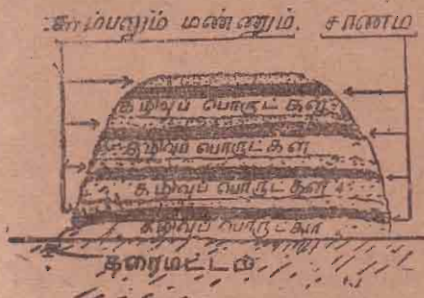 சாம்பலும் மண்ணும். சாணம்
கழிவுப் பொருட்கள்
கழிவுப் பொருட்கள்
கழிவுப் பொருட்கள்
கழிவுப் பொருட்கள்
தரைமட்டம்